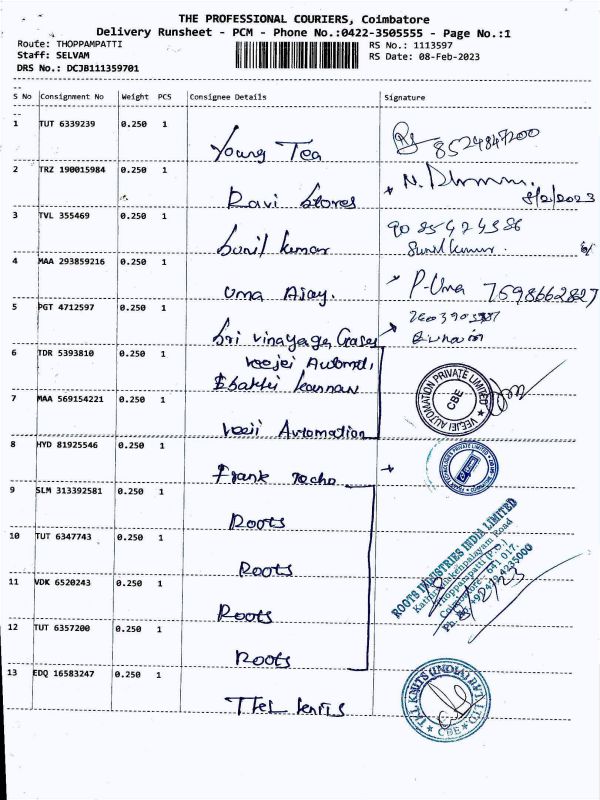 THE PROFESSIONAL COURIERS, Coimbatore
Delivery Runsheet - PCM - Phone No.:0422-3505555 - Page No.:1
Route: THOPPAMPATTI RS No.: 1113597
Staff: SELVAM RS Date: 08-Feb-2023
DRS No.: DCJB111359701
S No Consignment No Weight PCS Consignee Details Signature
1 TUT 6339239 0.250 1
Young Tea 8524847200
2 TRZ 190015984 0.250 1
Ravi Stores 8/2/2023
3 TVL 355469 0.250 1
Sunil kumar Sunil kumar.
4 MAA 293859216 0.250 1
Uma Ajay. P-Uma 7598662827
5 PGT 4712597 0.250 1
Sri Vinayaga
6 TDR 5393810 0.250 1
Veejei Automa.
Bhakti kannan
VEEJEI AUTOMATION PRIVATE LIMITED
CBE
7 MAA 569154221 0.250 1
Automation
8 HYD 81925546 0.250 1
Frank
9 SLM 313392581 0.250 1
Roots
10 TUT 6347743 0.250 1
Roots
11 VDK 6520243 0.250 1
Roots
12 TUT 6357200 0.250 1
Roots
ROOTS INDUSTRIES INDIA LIMITED
Thoppampatti (P.O.)
Coimbatore - 641 017.
13 EDQ 16583247 0.250 1
TKL knits
TKL KNITS (INDIA) PVT. LTD
CBE